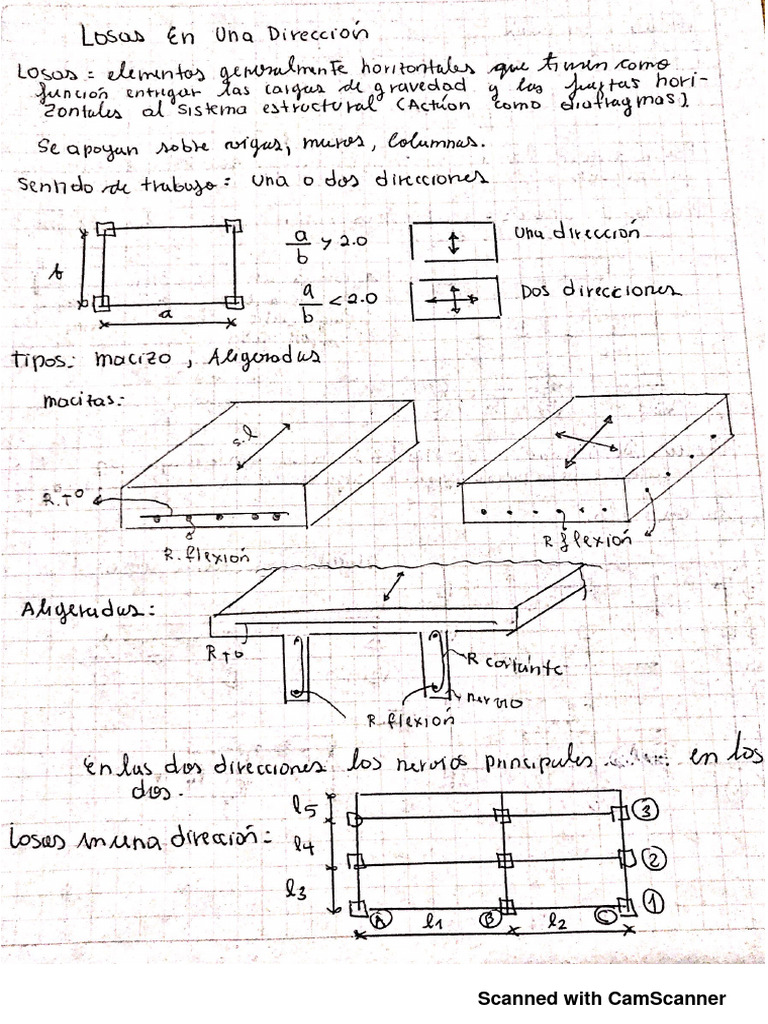 Losas En Una Dirección
Losas = elementos generalmente horizontales que tienen como
función entregar las cargas de gravedad y las fuerzas hori-
zontales al sistema estructural (Action como diafragmas).
Se apoyan sobre vigas, muros, columnas.
Sentido de trabajo: una o dos direcciones
b
a
a/b > 2.0
una dirección
a/b < 2.0
Dos direcciones
Tipos: macizo, Aligeradas
macizas:
s.l
R.T°
R.flexión
R flexión
Aligeradas:
R T°
R cortante
nervio
R.flexión
En las dos direcciones los nervios principales
en los
dos.
Losas en una dirección:
l5
l4
l3
3
2
1
A
l1
B
l2
C
Scanned with CamScanner